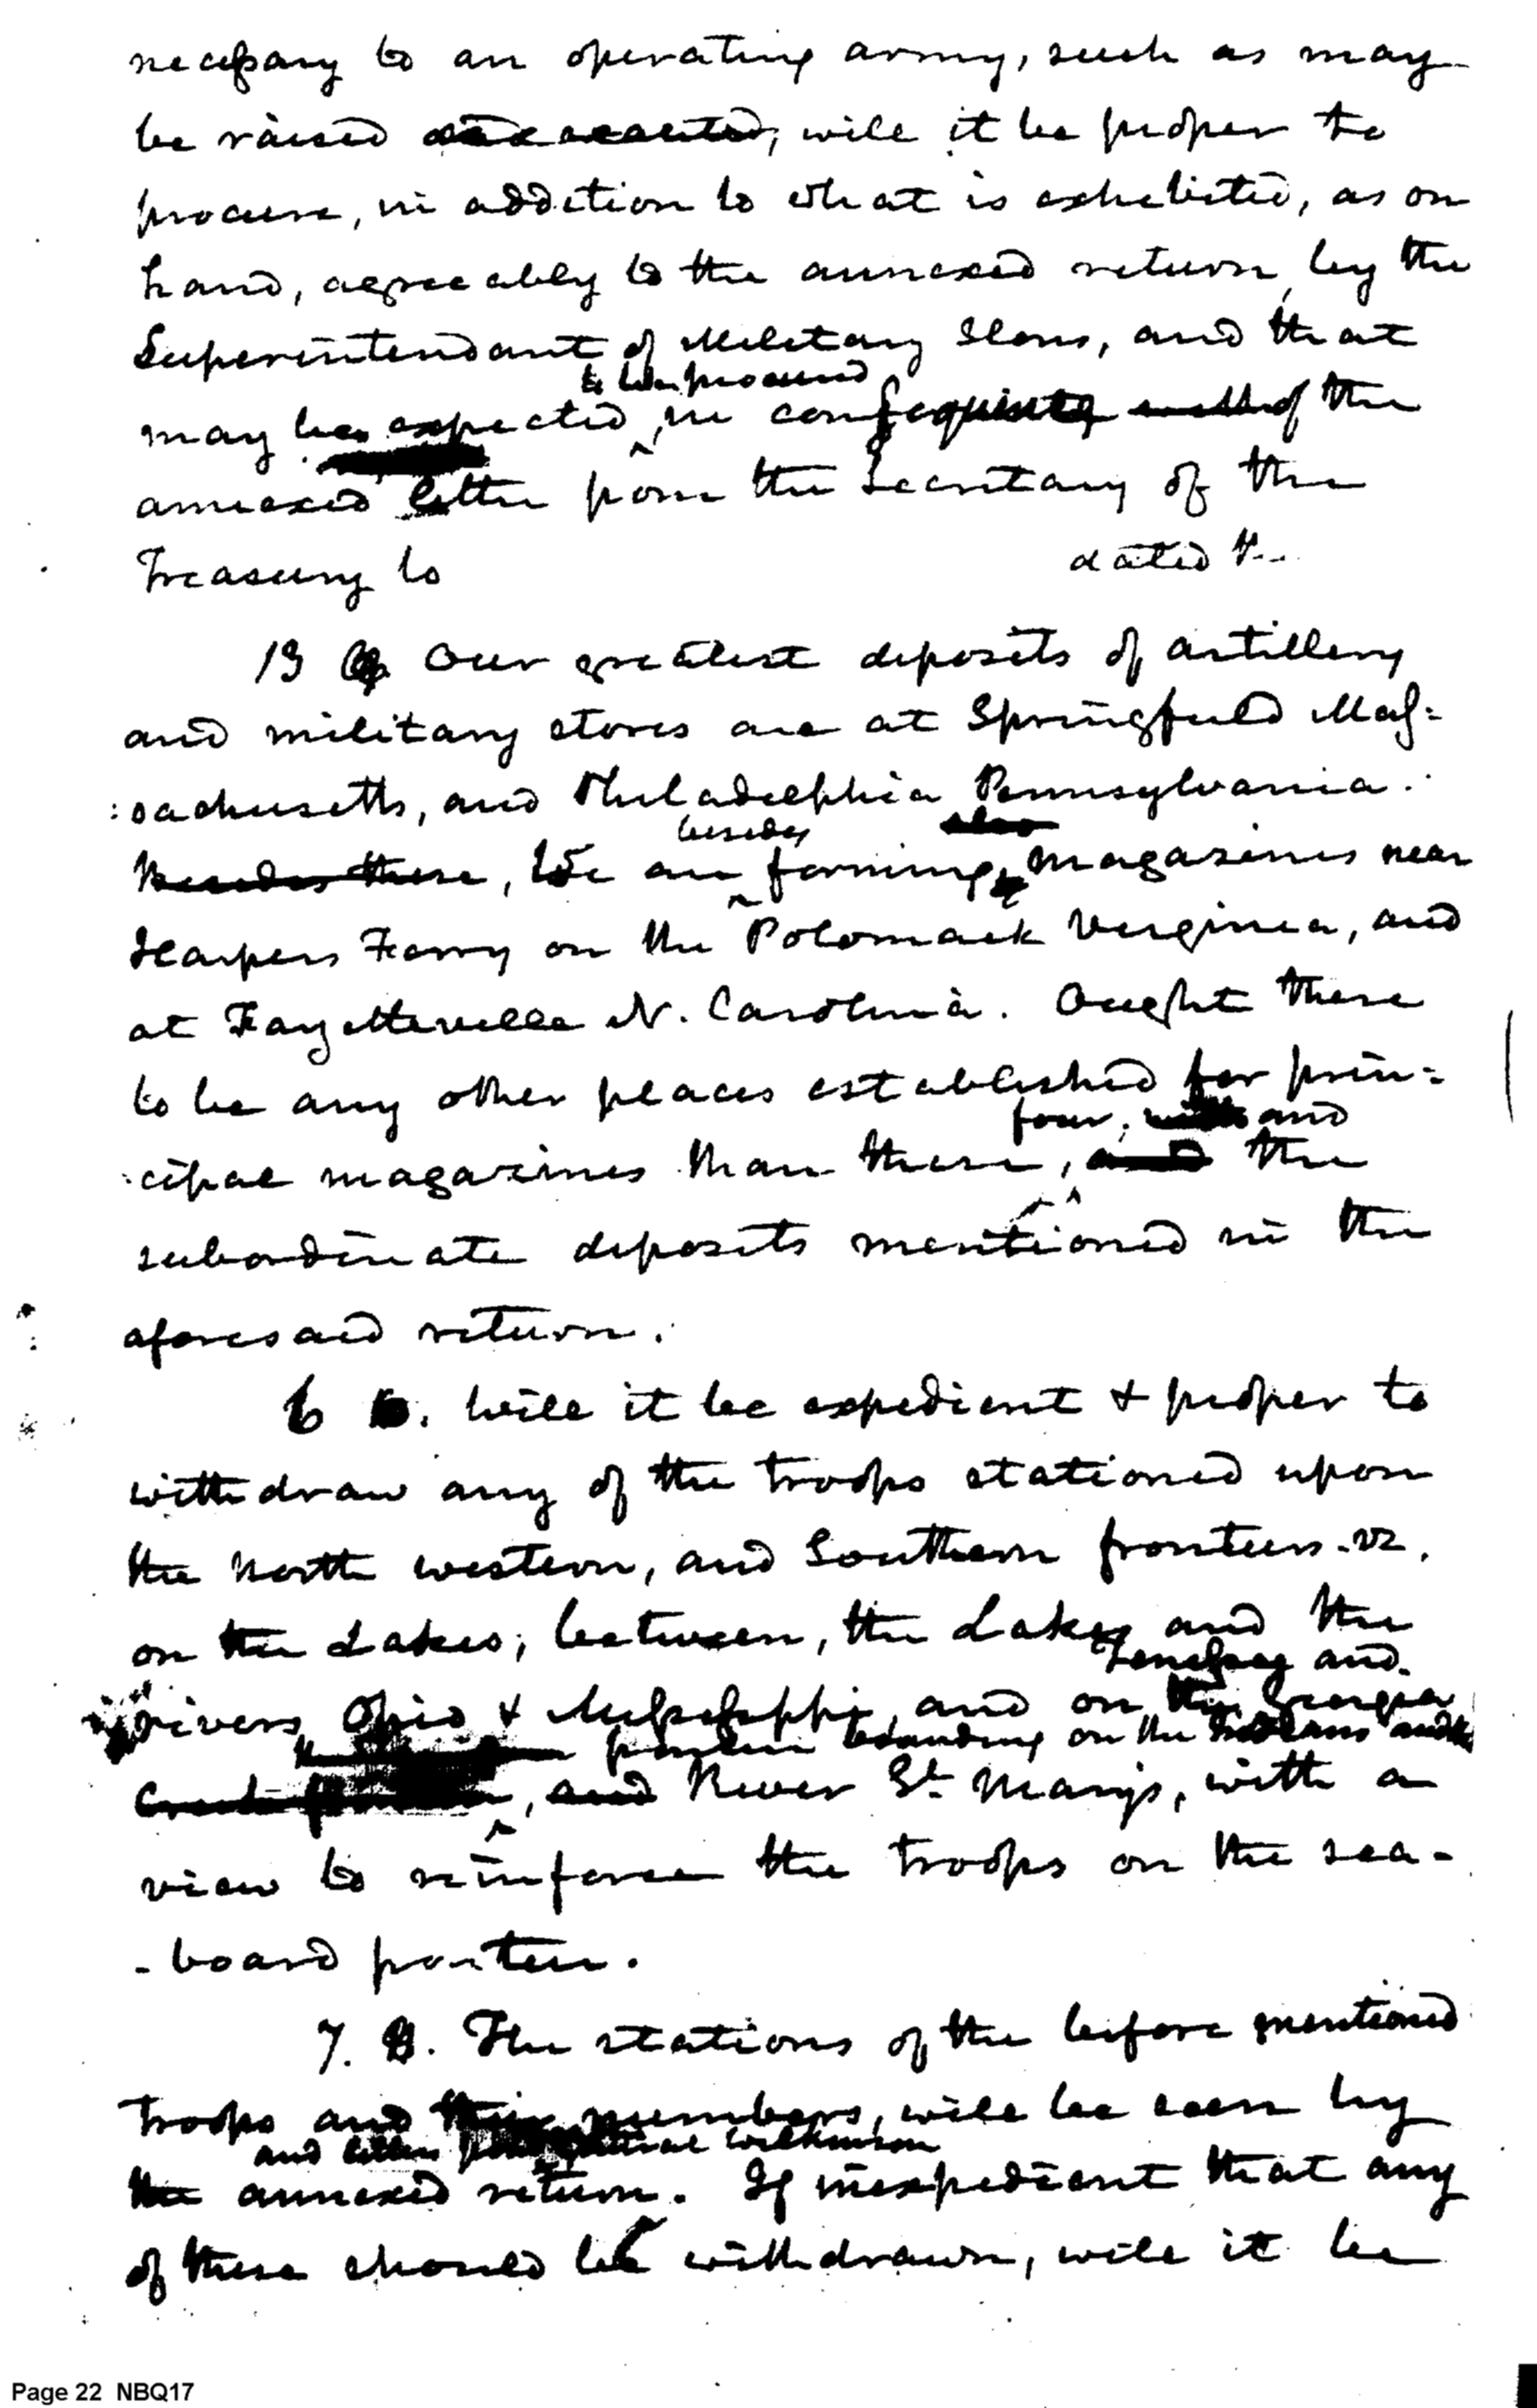 necessary to an operating army, such as may
be raised and accepted, will it be proper to
procure, in addition to what is exhibited, as on
hand, agreeably to the annexed return, by the
Superintendant of Military Stores, and that
to be procured
may be expected, in consequence of the
annexed letter from the Secretary of the
Treasury to dated the
13 Our greatest deposits of artillery
and military stores are at Springfield Mas=
:sachusetts, and Philadelphia Pennsylvania.
besides also
Besides these, We are forming, magazines near
Harpers Ferry on the Potomack Virginia, and
at Fayetteville N. Carolina. Ought there
to be any other places established for prin=
four, with and
:cipal magazines than these, and the
subordinate deposits mentioned in the
aforesaid return.
6 6. Will it be expedient & proper to
withdraw any of the troops stationed upon
the North western, and Southern frontiers. viz.
on the Lakes; between, the Lakes and the
Tennessee and
rivers Ohio & Mississippi, and on the Georgia
frontier bounding on the Indians and the
Creek, and River St. Marys, with a
view to reinforce the troops on the sea-
-board frontier.
7. 8. The stations of the before mentioned
troops and their numbers, will be seen by
and letter from General Wilkinson
the annexed return. If inexpedient that any
of these should be withdrawn, will it be
Page 22 NBQ17